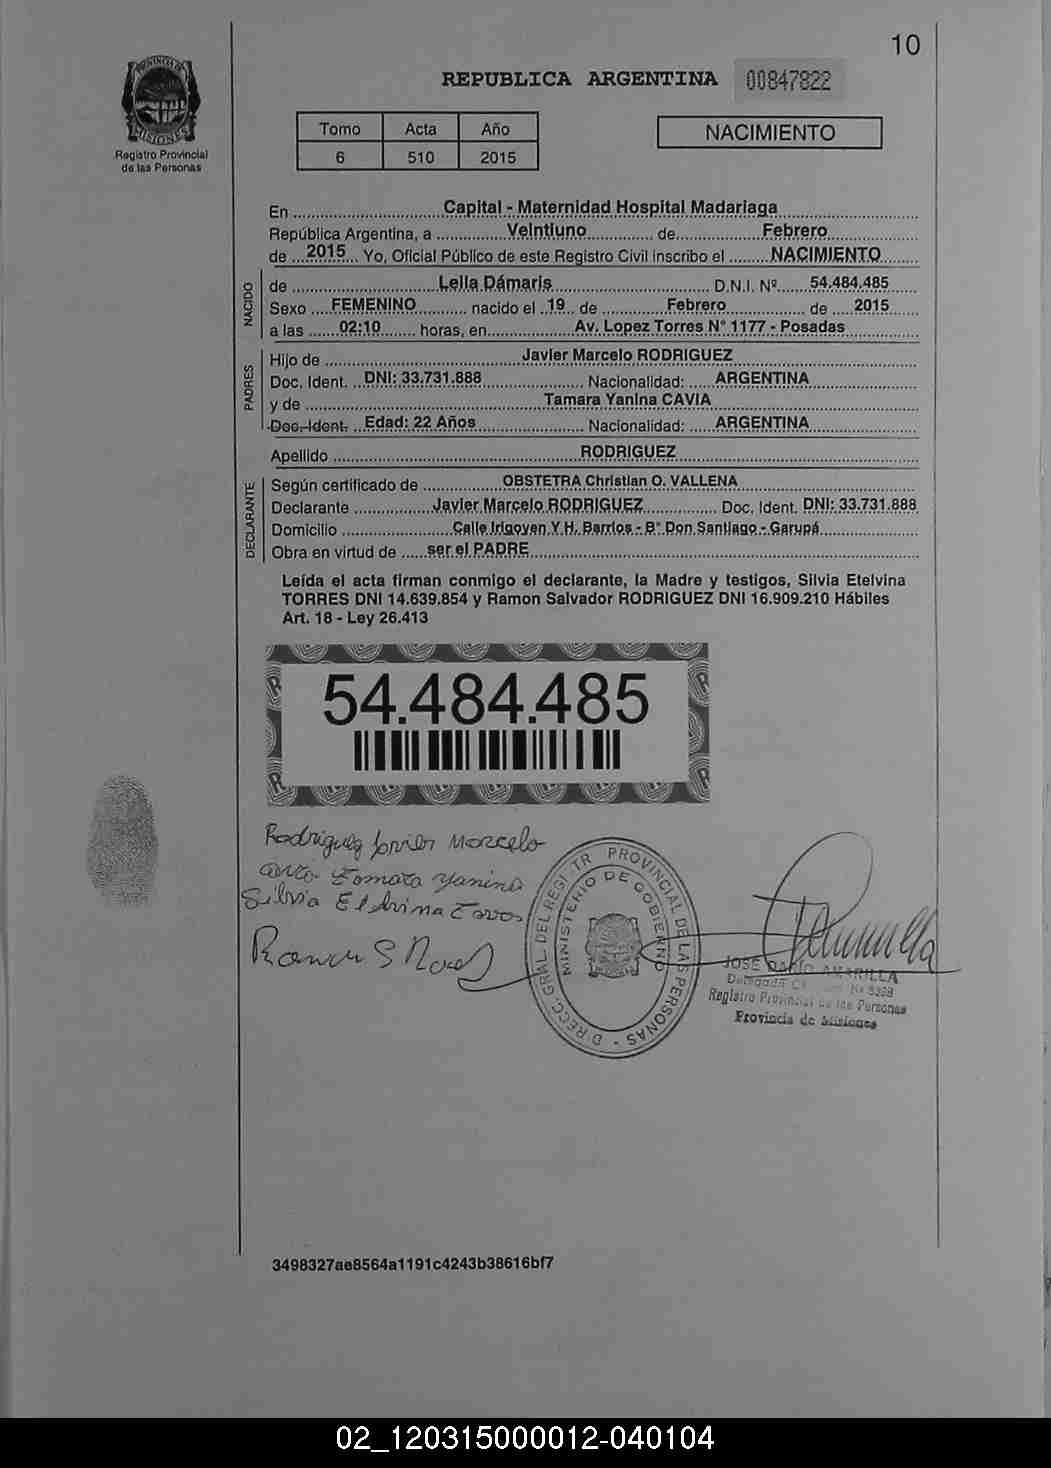 10
PROVINCIA DE
MISIONES
Registro Provincial
de las Personas
REPUBLICA ARGENTINA 00847822
Tomo Acta Año
6 510 2015
NACIMIENTO
En Capital - Maternidad Hospital Madariaga
República Argentina, a Veintiuno de Febrero
de 2015 Yo, Oficial Público de este Registro Civil inscribo el NACIMIENTO
NACIDO
de Leila Dámaris D.N.I. Nº 54.484.485
Sexo FEMENINO nacido el 19 de Febrero de 2015
a las 02:10 horas, en Av. Lopez Torres N° 1177 - Posadas
PADRES
Hijo de Javier Marcelo RODRIGUEZ
Doc. Ident. DNI: 33.731.888 Nacionalidad: ARGENTINA
y de Tamara Yanina CAVIA
Doc. Ident. Edad: 22 Años Nacionalidad: ARGENTINA
Apellido RODRIGUEZ
DECLARANTE
Según certificado de OBSTETRA Christian O. VALLENA
Declarante Javier Marcelo RODRIGUEZ Doc. Ident. DNI: 33.731.888
Domicilio Calle Irigoyen Y H. Barrios - B° Don Santiago - Garupá
Obra en virtud de ser el PADRE
Leída el acta firman conmigo el declarante, la Madre y testigos, Silvia Etelvina
TORRES DNI 14.639.854 y Ramon Salvador RODRIGUEZ DNI 16.909.210 Hábiles
Art. 18 - Ley 26.413
54.484.485
Rodriguez Javier Marcelo
Yanina
Silvia
Ramon S
DIRECC. GRAL. DEL REGISTR PROVINCIAL DE LAS PERSONAS
MINISTERIO DE GOBIERNO
JOSE DARÍO AMARILLA
Registro Provincial de las Personas
Provincia de Misiones
3498327ae8564a1191c4243b38616bf7
02_120315000012-040104